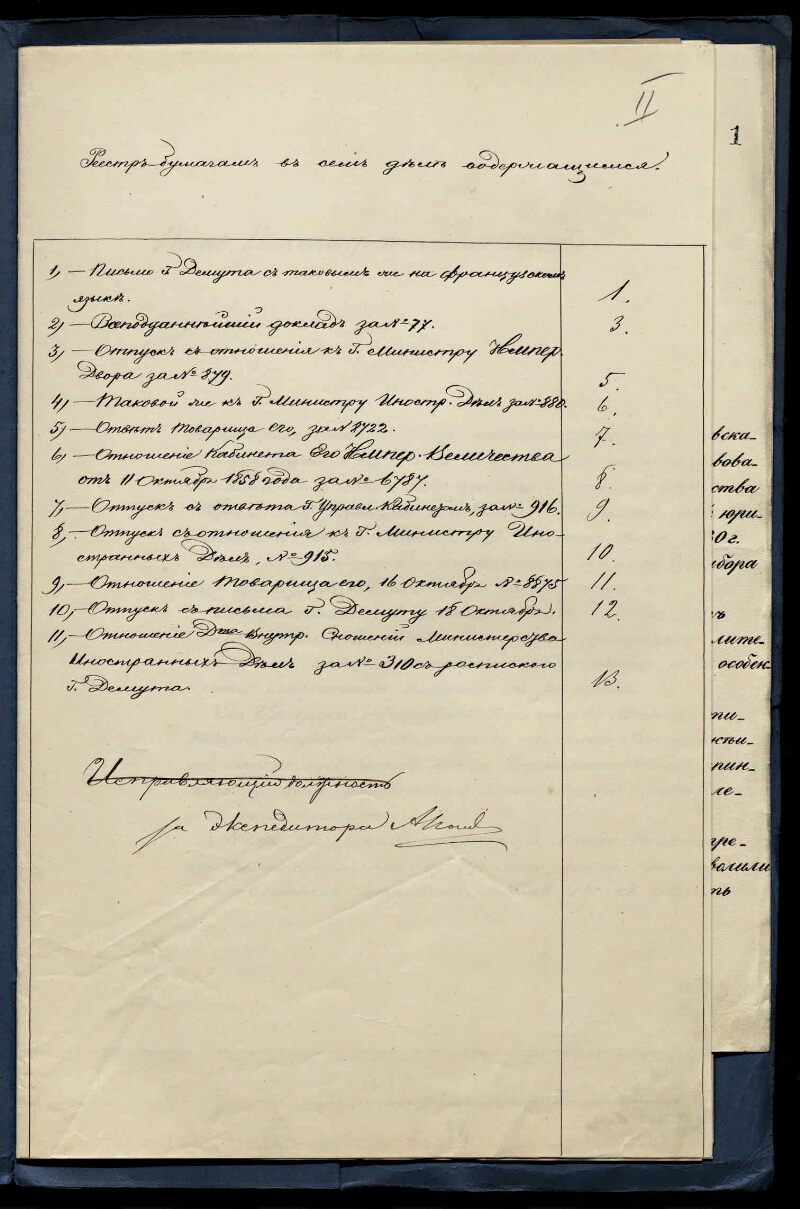 II
1
Реестръ бумагамъ въ семъ дѣлѣ содержащимся.
1, — Письмо Г. Демута съ таковымъ же на французскомъ
языкѣ. 1.
2, — Всеподданнѣйшій докладъ за № 77. 3.
3, — Отпускъ съ отношенія къ Г. Министру Импер.
Двора за № 879. 5.
4, — Таковой же къ Г. Министру Иностр. Дѣлъ за № 880. 6.
5, — Отвѣтъ Товарища его, за № 8722. 7.
6, — Отношеніе Кабинета Его Импер. Величества
отъ 11 Октября 1858 года за № 6787. 8.
7, — Отпускъ съ отвѣта Г. Управл. Кабинетомъ, за № 916. 9.
8, — Отпускъ съ отношенія къ Г. Министру Ино-
странныхъ Дѣлъ, № 915. 10.
9, — Отношеніе Товарища его, 16 Октября № 8875 11.
10, — Отпускъ съ письма Г. Демуту 18 Октября. 12.
11, — Отношеніе Дта Внутр. Сношеній Министерства
Иностранныхъ Дѣлъ за № 310 съ роспискою
Г. Демута. 13.
Исправляющій должность
за Экспедитора
вска-
вова-
ства
юри-
0 г.
бора
ъ
лите-
особен-
ти-
пин-
ле-
гре-
волили
ть